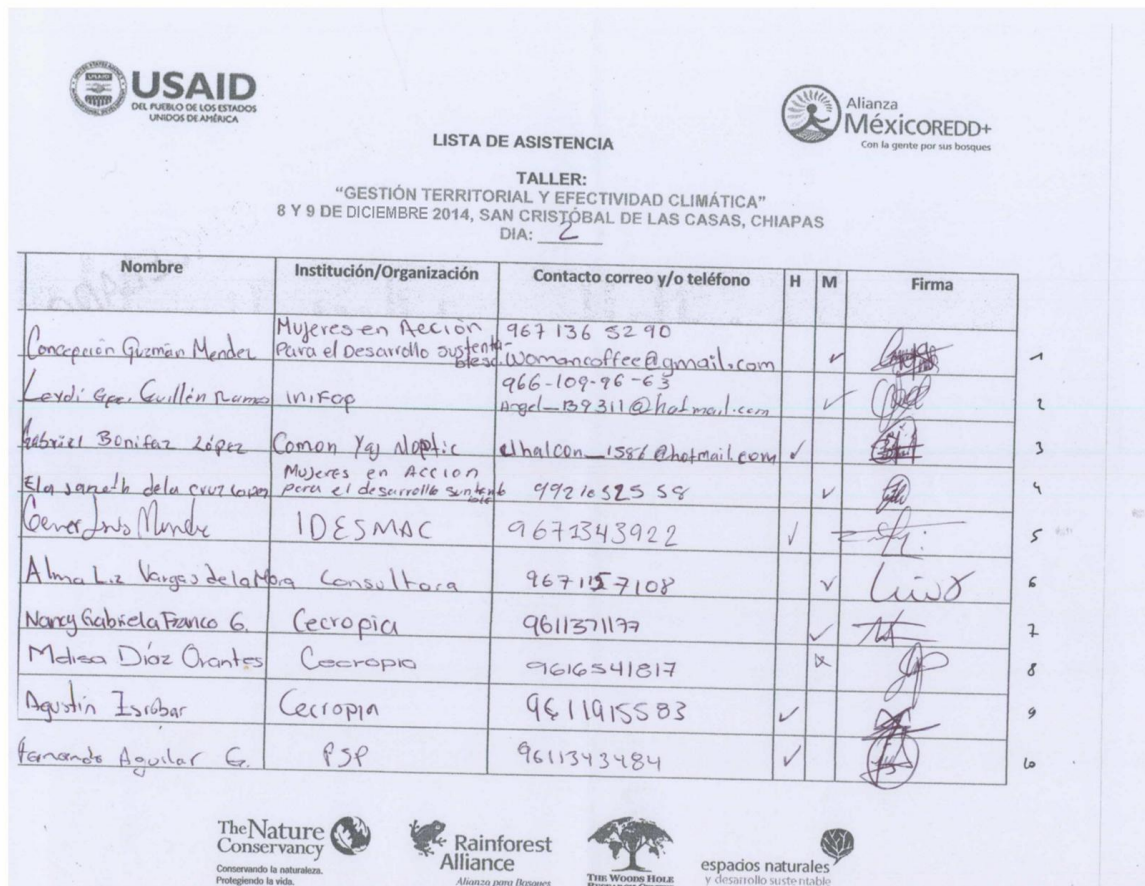 USAID
DEL PUEBLO DE LOS ESTADOS
UNIDOS DE AMÉRICA
Alianza
MéxicoREDD+
Con la gente por sus bosques
LISTA DE ASISTENCIA
TALLER:
"GESTIÓN TERRITORIAL Y EFECTIVIDAD CLIMÁTICA"
8 Y 9 DE DICIEMBRE 2014, SAN CRISTÓBAL DE LAS CASAS, CHIAPAS
DIA: 2
Nombre Institución/Organización Contacto correo y/o teléfono H M Firma
Concepción Guzmán Mendez Mujeres en Acción Para el Desarrollo sustenta- 967 136 52 90 womancoffee@gmail.com ✓ 1
Guillén inifap 966-109-96-63 Angel_139311@hotmail.com ✓ 2
Gabriel Bonifaz López Comon Yaj Noptic elhalcon_1586@hotmail.com ✓ 3
Ela Janeth dela cruz Lopez Mujeres en Accion para el desarrollo 9921032558 ✓ 4
IDESMAC 9671343922 ✓ 5
Alma Liz Vargas de la Mora Consultora 967 1157108 ✓ 6
Nancy Gabriela Franco G. Cecropia 9611371177 ✓ 7
Melisa Díaz Orantes Cecropia 9616541817 8
Agustín Escobar Cecropia 9611915583 ✓ 9
Fernando Aguilar G. PSP 9611343484 ✓ 10
The Nature
Conservancy
Conservando la naturaleza.
Protegiendo la vida.
Rainforest
Alliance
Alianza para Bosques
THE WOODS HOLE
RESEARCH CENTER
espacios naturales
y desarrollo sustentable